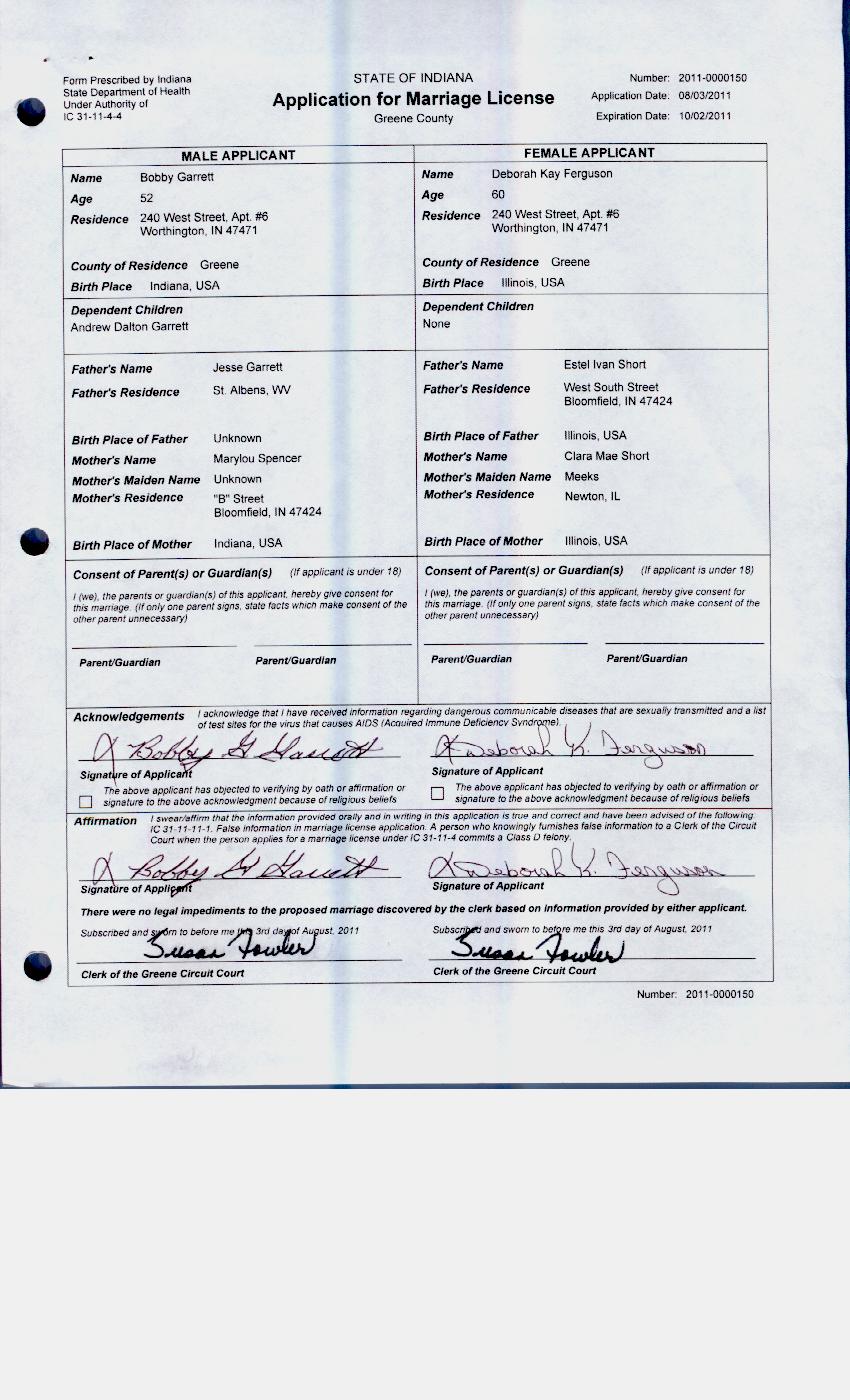 Form Prescribed by Indiana
State Department of Health
Under Authority of
IC 31-11-4-4
STATE OF INDIANA
Application for Marriage License
Greene County
Number: 2011-0000150
Application Date: 08/03/2011
Expiration Date: 10/02/2011
MALE APPLICANT
Name Bobby Garrett
Age 52
Residence 240 West Street, Apt. #6
Worthington, IN 47471
County of Residence Greene
Birth Place Indiana, USA
Dependent Children
Andrew Dalton Garrett
Father's Name Jesse Garrett
Father's Residence St. Albens, WV
Birth Place of Father Unknown
Mother's Name Marylou Spencer
Mother's Maiden Name Unknown
Mother's Residence "B" Street
Bloomfield, IN 47424
Birth Place of Mother Indiana, USA
Consent of Parent(s) or Guardian(s) (If applicant is under 18)
I (we), the parents or guardian(s) of this applicant, hereby give consent for
this marriage. (If only one parent signs, state facts which make consent of the
other parent unnecessary)
Parent/Guardian Parent/Guardian
FEMALE APPLICANT
Name Deborah Kay Ferguson
Age 60
Residence 240 West Street, Apt. #6
Worthington, IN 47471
County of Residence Greene
Birth Place Illinois, USA
Dependent Children
None
Father's Name Estel Ivan Short
Father's Residence West South Street
Bloomfield, IN 47424
Birth Place of Father Illinois, USA
Mother's Name Clara Mae Short
Mother's Maiden Name Meeks
Mother's Residence Newton, IL
Birth Place of Mother Illinois, USA
Consent of Parent(s) or Guardian(s) (If applicant is under 18)
I (we), the parents or guardian(s) of this applicant, hereby give consent for
this marriage. (If only one parent signs, state facts which make consent of the
other parent unnecessary)
Parent/Guardian Parent/Guardian
Acknowledgements I acknowledge that I have received information regarding dangerous communicable diseases that are sexually transmitted and a list
of test sites for the virus that causes AIDS (Acquired Immune Deficiency Syndrome).
X Bobby G Garrett X Deborah K. Ferguson
Signature of Applicant Signature of Applicant
The above applicant has objected to verifying by oath or affirmation or
signature to the above acknowledgment because of religious beliefs
The above applicant has objected to verifying by oath or affirmation or
signature to the above acknowledgment because of religious beliefs
Affirmation I swear/affirm that the information provided orally and in writing in this application is true and correct and have been advised of the following:
IC 31-11-11-1. False information in marriage license application. A person who knowingly furnishes false information to a Clerk of the Circuit
Court when the person applies for a marriage license under IC 31-11-4 commits a Class D felony.
X Bobby G Garrett X Deborah K. Ferguson
Signature of Applicant Signature of Applicant
There were no legal impediments to the proposed marriage discovered by the clerk based on information provided by either applicant.
Subscribed and sworn to before me this 3rd day of August, 2011 Subscribed and sworn to before me this 3rd day of August, 2011
Susan Fowler Susan Fowler
Clerk of the Greene Circuit Court Clerk of the Greene Circuit Court
Number: 2011-0000150